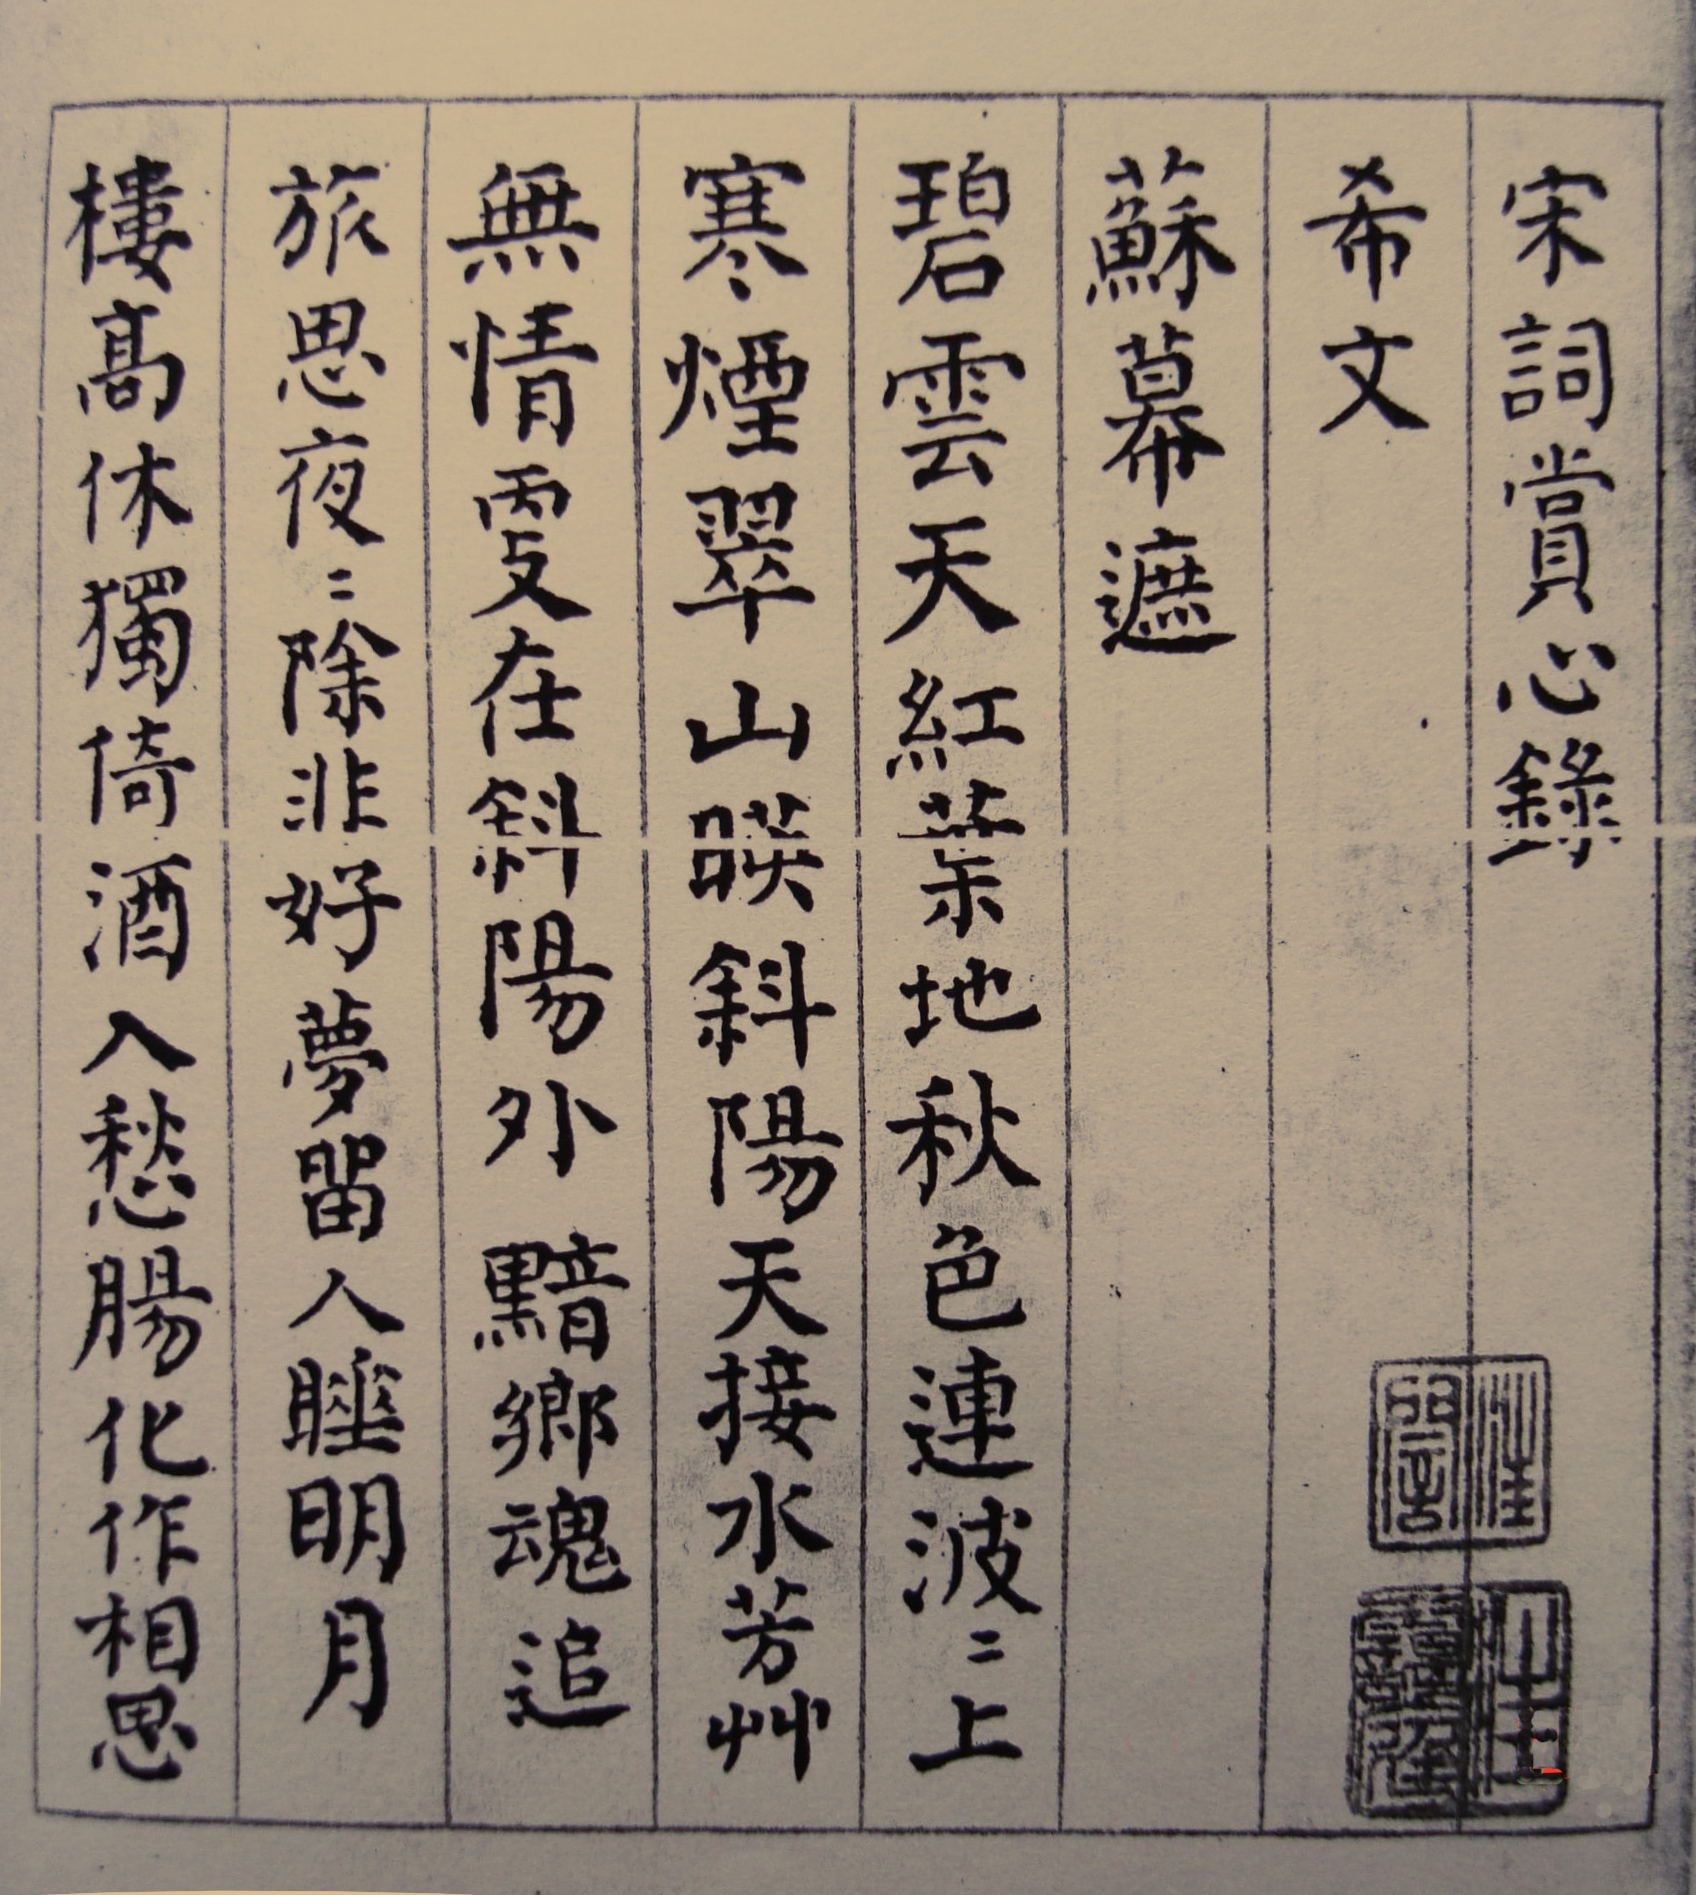 宋詞賞心錄
希文
蘇幕遮
碧雲天紅葉地秋色連波〻上
寒煙翠山暎斜陽天接水芳艸
無情更在斜陽外 黯鄉魂追
旅思夜〻除非好夢留人睡明月
樓高休獨倚酒入愁腸化作相思